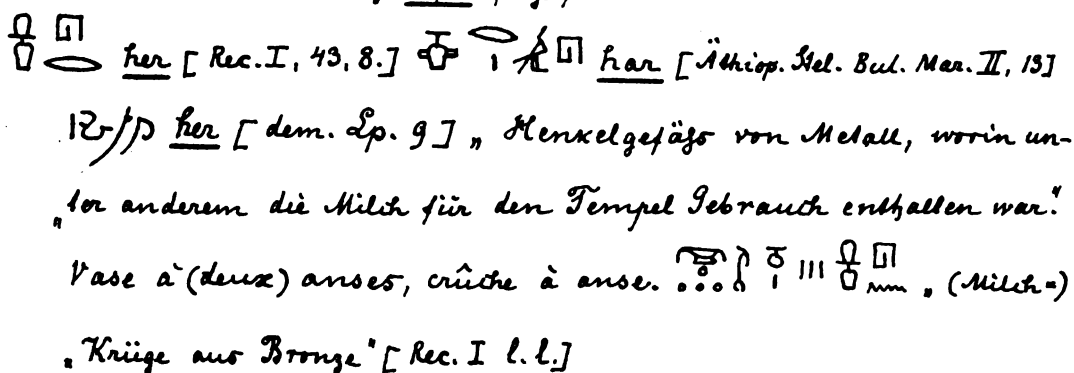 her [Rec. I, 43, 8.] har [Äthiop. Stel. Bul. Mar. II, 13]
her [dem. Lp. 9] „Henkelgefäſs von Metall, worin un-
„ter anderem die Milch für den Tempel Gebrauch enthalten war."
Vase à (deux) anses, crûche à anse. „(Milch=)
„Krüge aus Bronze" [Rec. I l. l.]